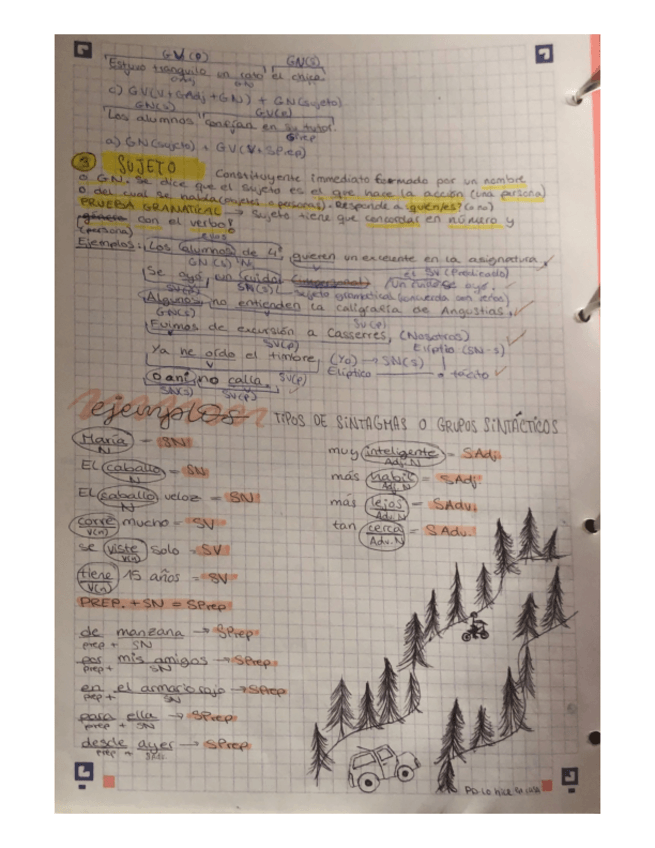 GV(P) GN(S)
Estuvo tranquilo en casa el chico.
c) GV(V+GAdj+GN) + GN(sujeto)
GN(S) GV(P)
Los alumnos confían en su tutor.
SPrep
a) GN(sujeto) + GV(V+SPrep)
3 SUJETO Constituyente inmediato formado por un nombre
o GN. Se dice que el sujeto es el que hace la acción (una persona)
o del cual se habla (objetos o personas). Responde a ¿quién/es?
PRUEBA GRAMATICAL → Sujeto tiene que concordar en número y
género con el verbo!
(persona)
Ejemplos: Los alumnos de 4º quieren un excelente en la asignatura. ✓
GN(S) N V el SV(Predicado)
Se oyó un ruido (impersonal) / Un ruido se oyó. ✓
SV(P) SN(S) Sujeto gramatical (concuerda con
Algunos no entienden la caligrafía de Angustias. ✓
GN(S) V SV(P)
Fuimos de excursión a Casserres, (Nosotros) ✓
V SV(P) Elíptic (SN-S)
Ya he oído el timbre, (Yo) → SN(S)
V Elíptico tácito ✓
Dani no calla. SV(P) ✓
SN(S) SV(P)
ejemplos TIPOS DE SINTAGMAS O GRUPOS SINTÁCTICOS
María = SN
N
El caballo = SN
N
El caballo veloz = SN
N
corre mucho = SV
V(n)
se viste solo = SV
V(n)
tiene 15 años = SV
V(n)
PREP. + SN = SPrep
de manzana → SPrep
prep + SN
por mis amigos → SPrep
prep + SN
en el armario rojo → SPrep
prep + SN
para ella → SPrep
prep + SN
desde ayer → SPrep
prep +
muy inteligente = SAdj
Adj. N
más hábil = SAdj
Adj. N
más lejos = SAdv.
Adv. N
tan cerca = SAdv.
Adv. N
PD: Lo hice en casa